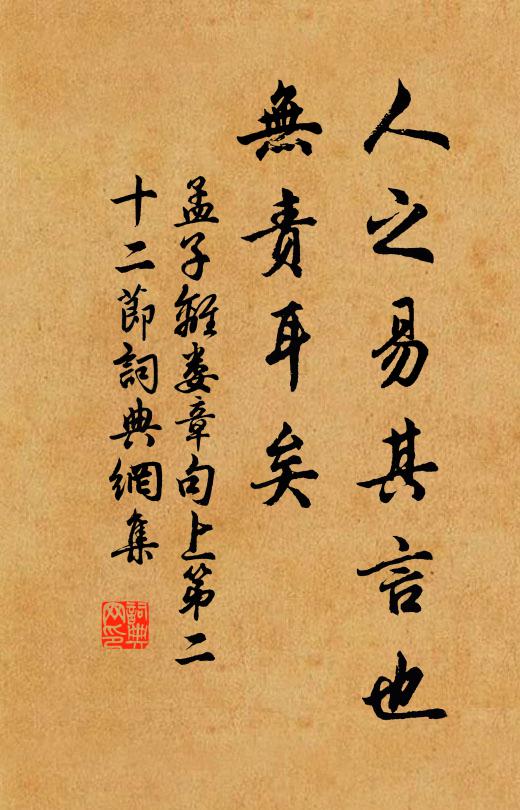 人之易其言也
無責耳矣
孟子離婁章句上第二
十二節詞典網集
詞典
网印